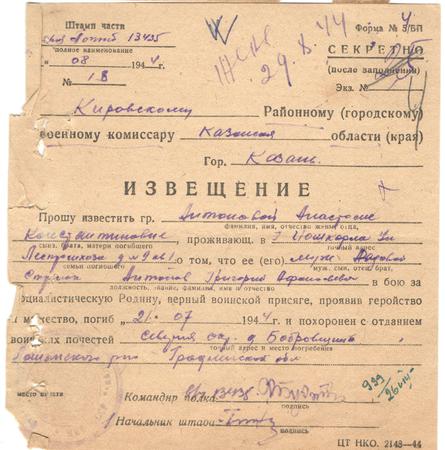 Штамп части
Форма № 5/БП
4
13495
полное наименование
СЕКРЕТНО
(после заполнения)
29.8.44
08 1944 г.
№ 18
Экз. №
Кировскому Районному (городскому)
военному комиссару Казанская области (края)
Гор. Казань.
ИЗВЕЩЕНИЕ
Прошу известить гр. Антоновой Анастасие
фамилия, имя, отчество жены, отца,
Константиновне, проживающ. в г Йошкарла ул
сына, брата, матери погибшего точный адрес
о том, что ее (его) муж рядовой
семьи погибшего муж, сын, отец, брат,
Стрелок Антонов Григорий в бою за
должность, звание, фамилия, имя и отчество
социалистическую Родину, верный воинской присяге, проявив геройство
и мужество, погиб "21" 07 1944 г. похоронен с отданием
воинских почестей Северная окр. д. Бобровщина
точный адрес и место погребения
р-н Гродненская обл
место печати
Командир полка
подпись
Начальник штаба
подпись
999
26/VIII
ЦТ НКО. 2148—44